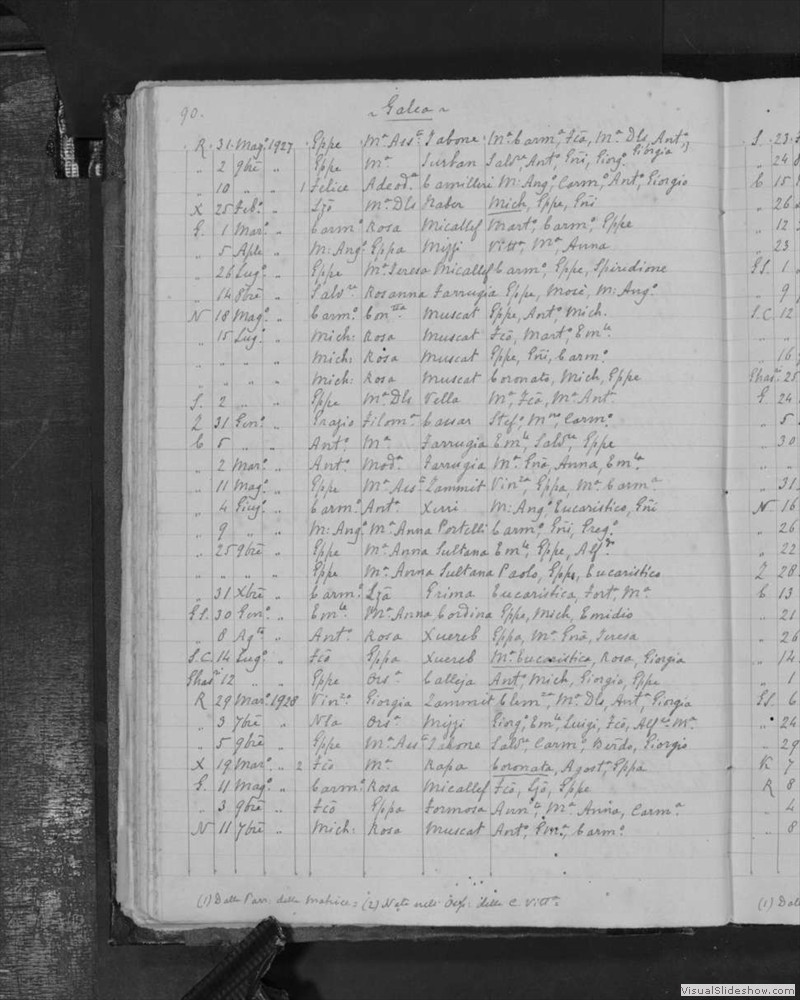 90. ~ Galea ~
R 31 Mag.º 1927 Eppe Mª Assª Tabone Mª Carmª, Fcõ, Mª Dls, Antª, Giorgia
„ 2 9brē „ Eppe Mª Surban Salvra, Antº, Gni, Giorgº
„ 10 „ „ 1 Felice Adeodª Camilleri M: Angº, Carmº, Antº, Giorgio
X 25 Febº „ Mª Dls Haber Mich, Eppe, Gni
G. 1 Marº „ Carmº Rosa Micallef Martº, Carmº, Eppe
„ 5 Aple „ M: Angº Eppa Mizzi Vittª, Mª, Anna
„ 26 Lugº „ Eppe Mª Teresa Micallef Carmº, Eppe, Spiridione
„ 14 8brē „ Salvre Rosanna Farrugia Eppe, Mosè, M: Angº
N 18 Magº „ Carmº Muscat Eppe, Antº, Mich.
„ 15 Lugº „ Mich: Rosa Muscat Fcõ, Martº, Emle
„ „ „ „ Mich: Rosa Muscat Eppe, Gni, Carmº
„ „ „ „ Mich: Rosa Muscat Coronato, Mich, Eppe
S. 2 „ „ Eppe Mª Dls Vella Mª, Fcõ, Mª Ant.
Z 31 Genº „ Grazio Filomª Cassar Stefº, Carmº
C 5 „ „ Antº Mª Farrugia Emle, Salvre, Eppe
„ 2 Marº „ Antº Modª Farrugia Mª Gnã, Anna, Emla
„ 11 Magº „ Eppe Mª Assª Zammit Vinza, Eppa, Mª Carmª
„ 4 Giugº „ Carmº Antª Xirri M: Angº Eucaristico, Gni
„ 9 „ „ M: Angº Mª Anna Portelli Carmº, Gni, Gregº
„ 25 9brē „ Eppe Mª Anna Sultana Emle, Eppe, Alfdo
„ „ „ „ Eppe Mª Anna Sultana Paolo, Eppe, Eucaristico
„ 31 Xbrē „ Carmº Grima Eucaristica, Fortª, Mª
GS. 30 Genº „ Emle Mª Anna Cordina Eppe, Mich, Emidio
„ 8 Agto „ Antº Rosa Xuereb Eppa, Mª Gnã, Teresa
S.C. 14 Lugº „ Fcõ Eppa Xuereb Mª Eucaristica, Rosa, Giorgia
Ghasª 12 „ „ Eppe Orsª Calleja Antº, Mich, Giorgio, Eppe
R 29 Marº 1928 Vinzo Giorgia Zammit Clemza, Mª Dls, Antª, Giorgia
„ 3 7brē „ Nla Orsª Mizzi Giorgº, Emle, Luigi, Fcõ, Mª
„ 5 9brē „ Eppe Mª Assª Tabone Salvre, Carmº, Giorgio
X 19 Marº „ 2 Fcõ Mª Rapa Coronata, Agostª, Eppa
G. 11 Magº „ Carmº Rosa Micallef Fcõ, Eppe
„ 3 9brē „ Fcõ Eppa Formosa Mª Anna, Carmª
N 11 7brē „ Mich: Rosa Muscat Antº, Carmº
(1) Dalla Parr. della Matrice; (2) Nata nell' Osp. della C. Vittª
S. 23
„ 24
C 15
„ 26
„ 12
„ 23
GS. 1
„ 9
S.C 12
„ „
„ 16
Ghasª 25
G 24
„ 5
„ 30
„ 31
N 16
„ 26
„ 22
Z 28
C 13
„ 21
„ 26
„ 14
„ 1
GS. 6
„ 24
„ 29
K 7
R 8
„ 4
„ 8
(1) Dal
VisualSlideshow.com